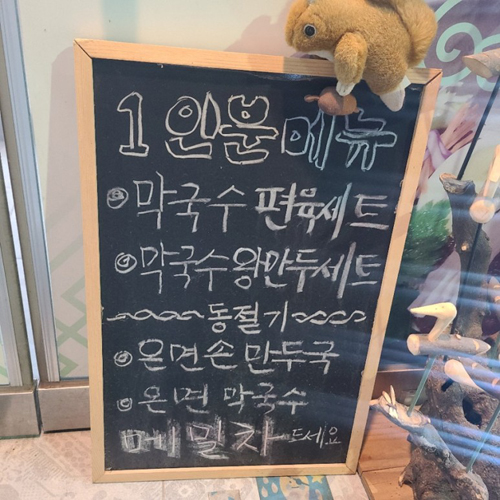 1인분메뉴
막국수 편육세트
막국수왕만두세트
동절기
온면손만두국
온면 막국수
메밀차드세요